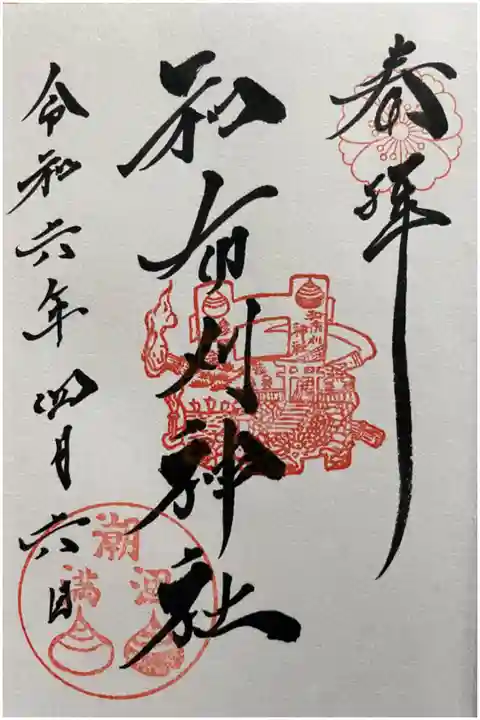 奉拝
和布刈神社
令和六年四月六日
潮
満
和布刈
神社